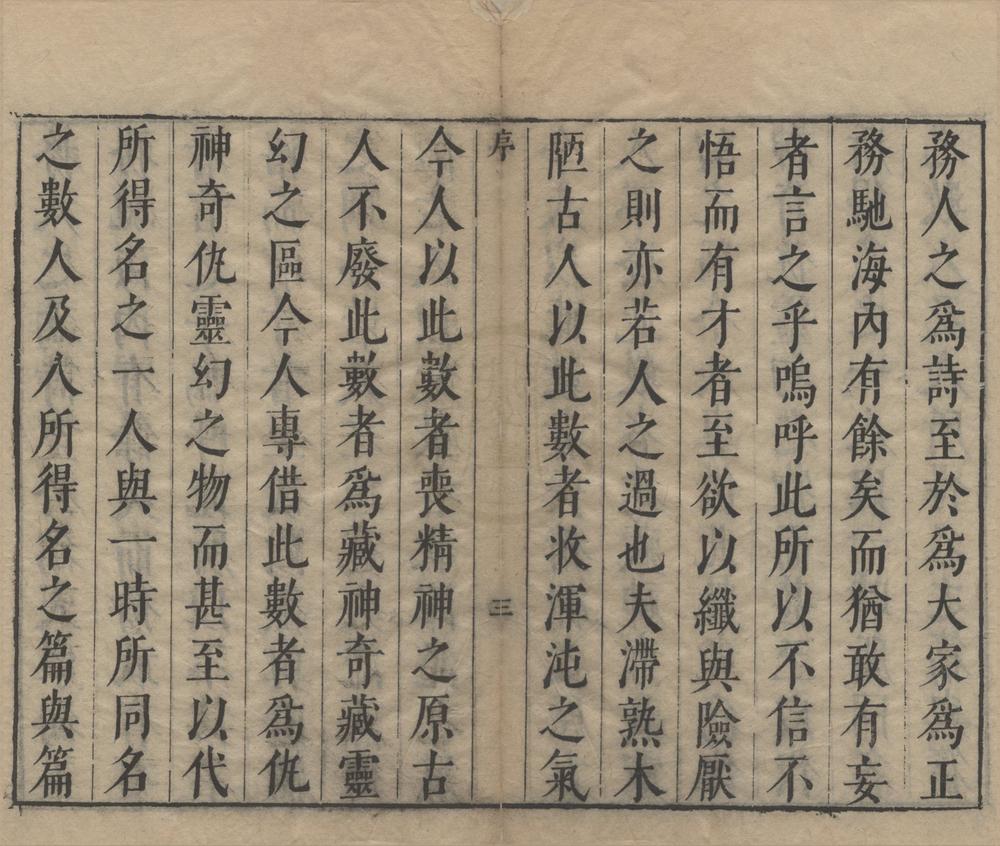 務人之爲詩至於爲大家爲正
務馳海內有餘矣而猶敢有妄
者言之乎嗚呼此所以不信不
悟而有才者至欲以纖與險厭
之則亦若人之過也夫滯熟木
陋古人以此數者收渾沌之氣
序
三
今人以此數者喪精神之原古
人不廢此數者爲藏神奇藏靈
幻之區今人專借此數者爲仇
神奇仇靈幻之物而甚至以代
所得名之一人與一時所同名
之數人及人所得名之篇與篇